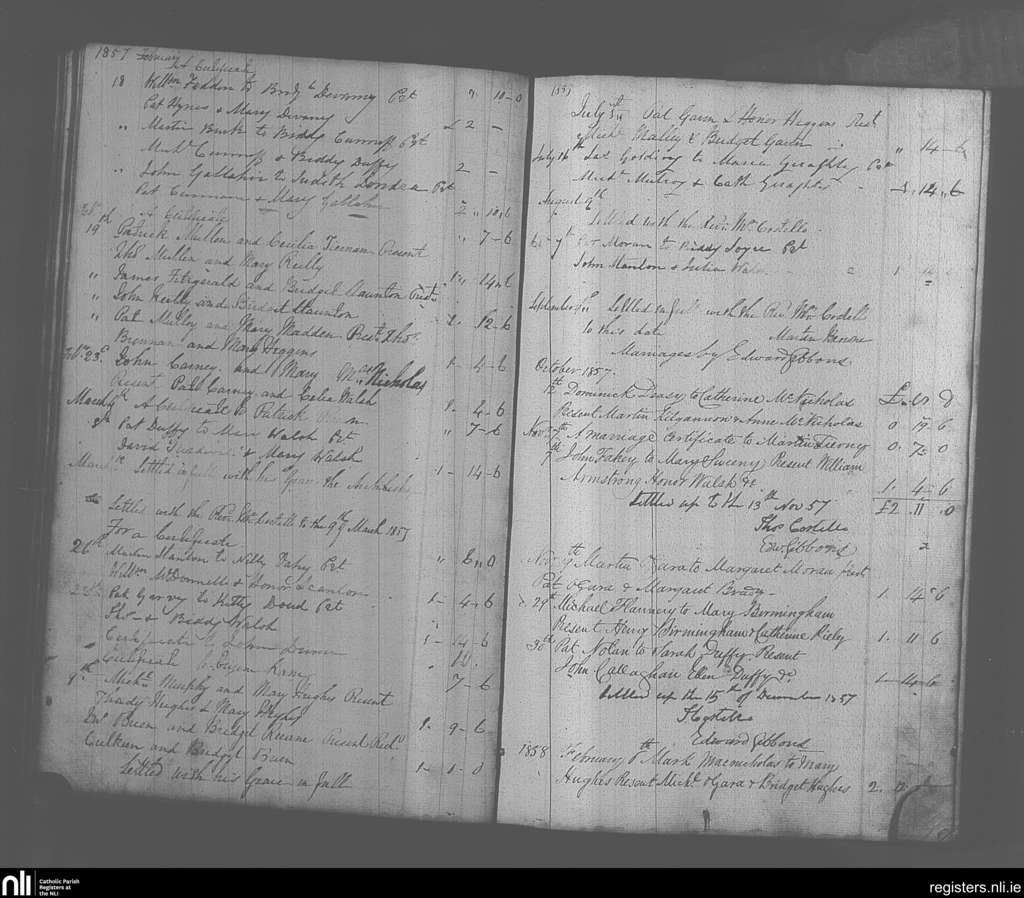 1857 February
A Certificate
18 Willm Faddin to Bridgt Devanny Pst " 10-0
Pat Hynes & Mary Devany £2 -
" Martin Burk to Biddy Curroff Pst
Michl Curroff & Biddy Duffy 2 -
" John Gallahin to Judith Pst
Pat & Mary Gallahin 2 " 10 " 6
Feb A Certificate " 7-6
19th Patrick Mullen and Cecilia Tiernan Present
Ths Mullen and Mary Reilly 1 " 14 " 6
" James Fitzgerald and Bridget Staunton Prest
" John Reilly and Bridget Staunton 2 - 12-6
" Pat Mulloy and Mary Madden Prest Thos
Brennan and Mary Higgins 1- 4-6
Feb 23d John Carney and Mary McNicholas
Present Patt Carney and Celia Walsh 1- 4-6
March A Certificate to Patrick " 7-6
9th Pat Duffy to Mary Walsh Pst
David & Mary Walsh 1- 14-6
March Settled in full with his Grace the Archbishop
Settled with the Revd Wm Costello to the 9th March 1857
For a Certificate " 8 " 0
26th Martin Manton to Kitty Dahy Pst
Willm McDonnelle & Honor Scanlon 1- 4-6
Pat Garvey to Kitty Doud Pst
Ths & Biddy Walsh 1- 14-6
" Certificate of John 10
" Certificate to Bryan Kane 7-6
9th Michl Murphy and Mary Hughes Present
Thady Hughes & Mary 1- 9-6
Bruen and Bridget Ruane Present Richd
Culkeen and Bridget Bruen 1- 1-0
Settled with his Grace in full
1857
July 5th Pat Gavin & Honor Higgins Prest
Michl Mailley & Bridget Gavin " 14-6
July 16th Jas Golding to Maria Geraghty Pst
Michl Mulroy & Cath Geraghty 1 " 14 " 6
August 9th
Settled with the Revd Wm Costello
Moran to Biddy Joyce Pst
John Manton & Julia 1
September Settled in full with the Revd Wm Costello
to this date Martin
Marriages by Edward Gibbons
October 1857. £ S D
12th Dominick Deasy to Catherine McNicholas
Present Martin Kilgannon & Anne McNicholas 0 19 6
Novr 7th A marriage Certificate to Martin Tierney 0. 7. 0
7th John Fahey to Mary Sweeny Present William
Armstrong Honor Walsh &c 1. 4. 6
Settled up to the 13th Nov 57 £2 . 11 . 0
Thos Costello
Edw Gibbons
Nov 19th Martin OGara to Margaret Moran Prest
Pat OGara & Margaret Brady 1. 4 6
29th Michael Flannery to Mary Birmingham
Present Henry Birmingham & Catherine Riely 1. 11 6
30th Pat Nolan to Sarah Duffy. Present
John Callaghan Ellen Duffy &c
Settled up the 15th of December 1857
T Costello
Edward Gibbons
1858 February 1th Mark Macnicholas to Mary
Hughes Present Michl OGara & Bridget Hughes 2.
nli
Catholic Parish
Registers at
the NLI
registers.nli.ie